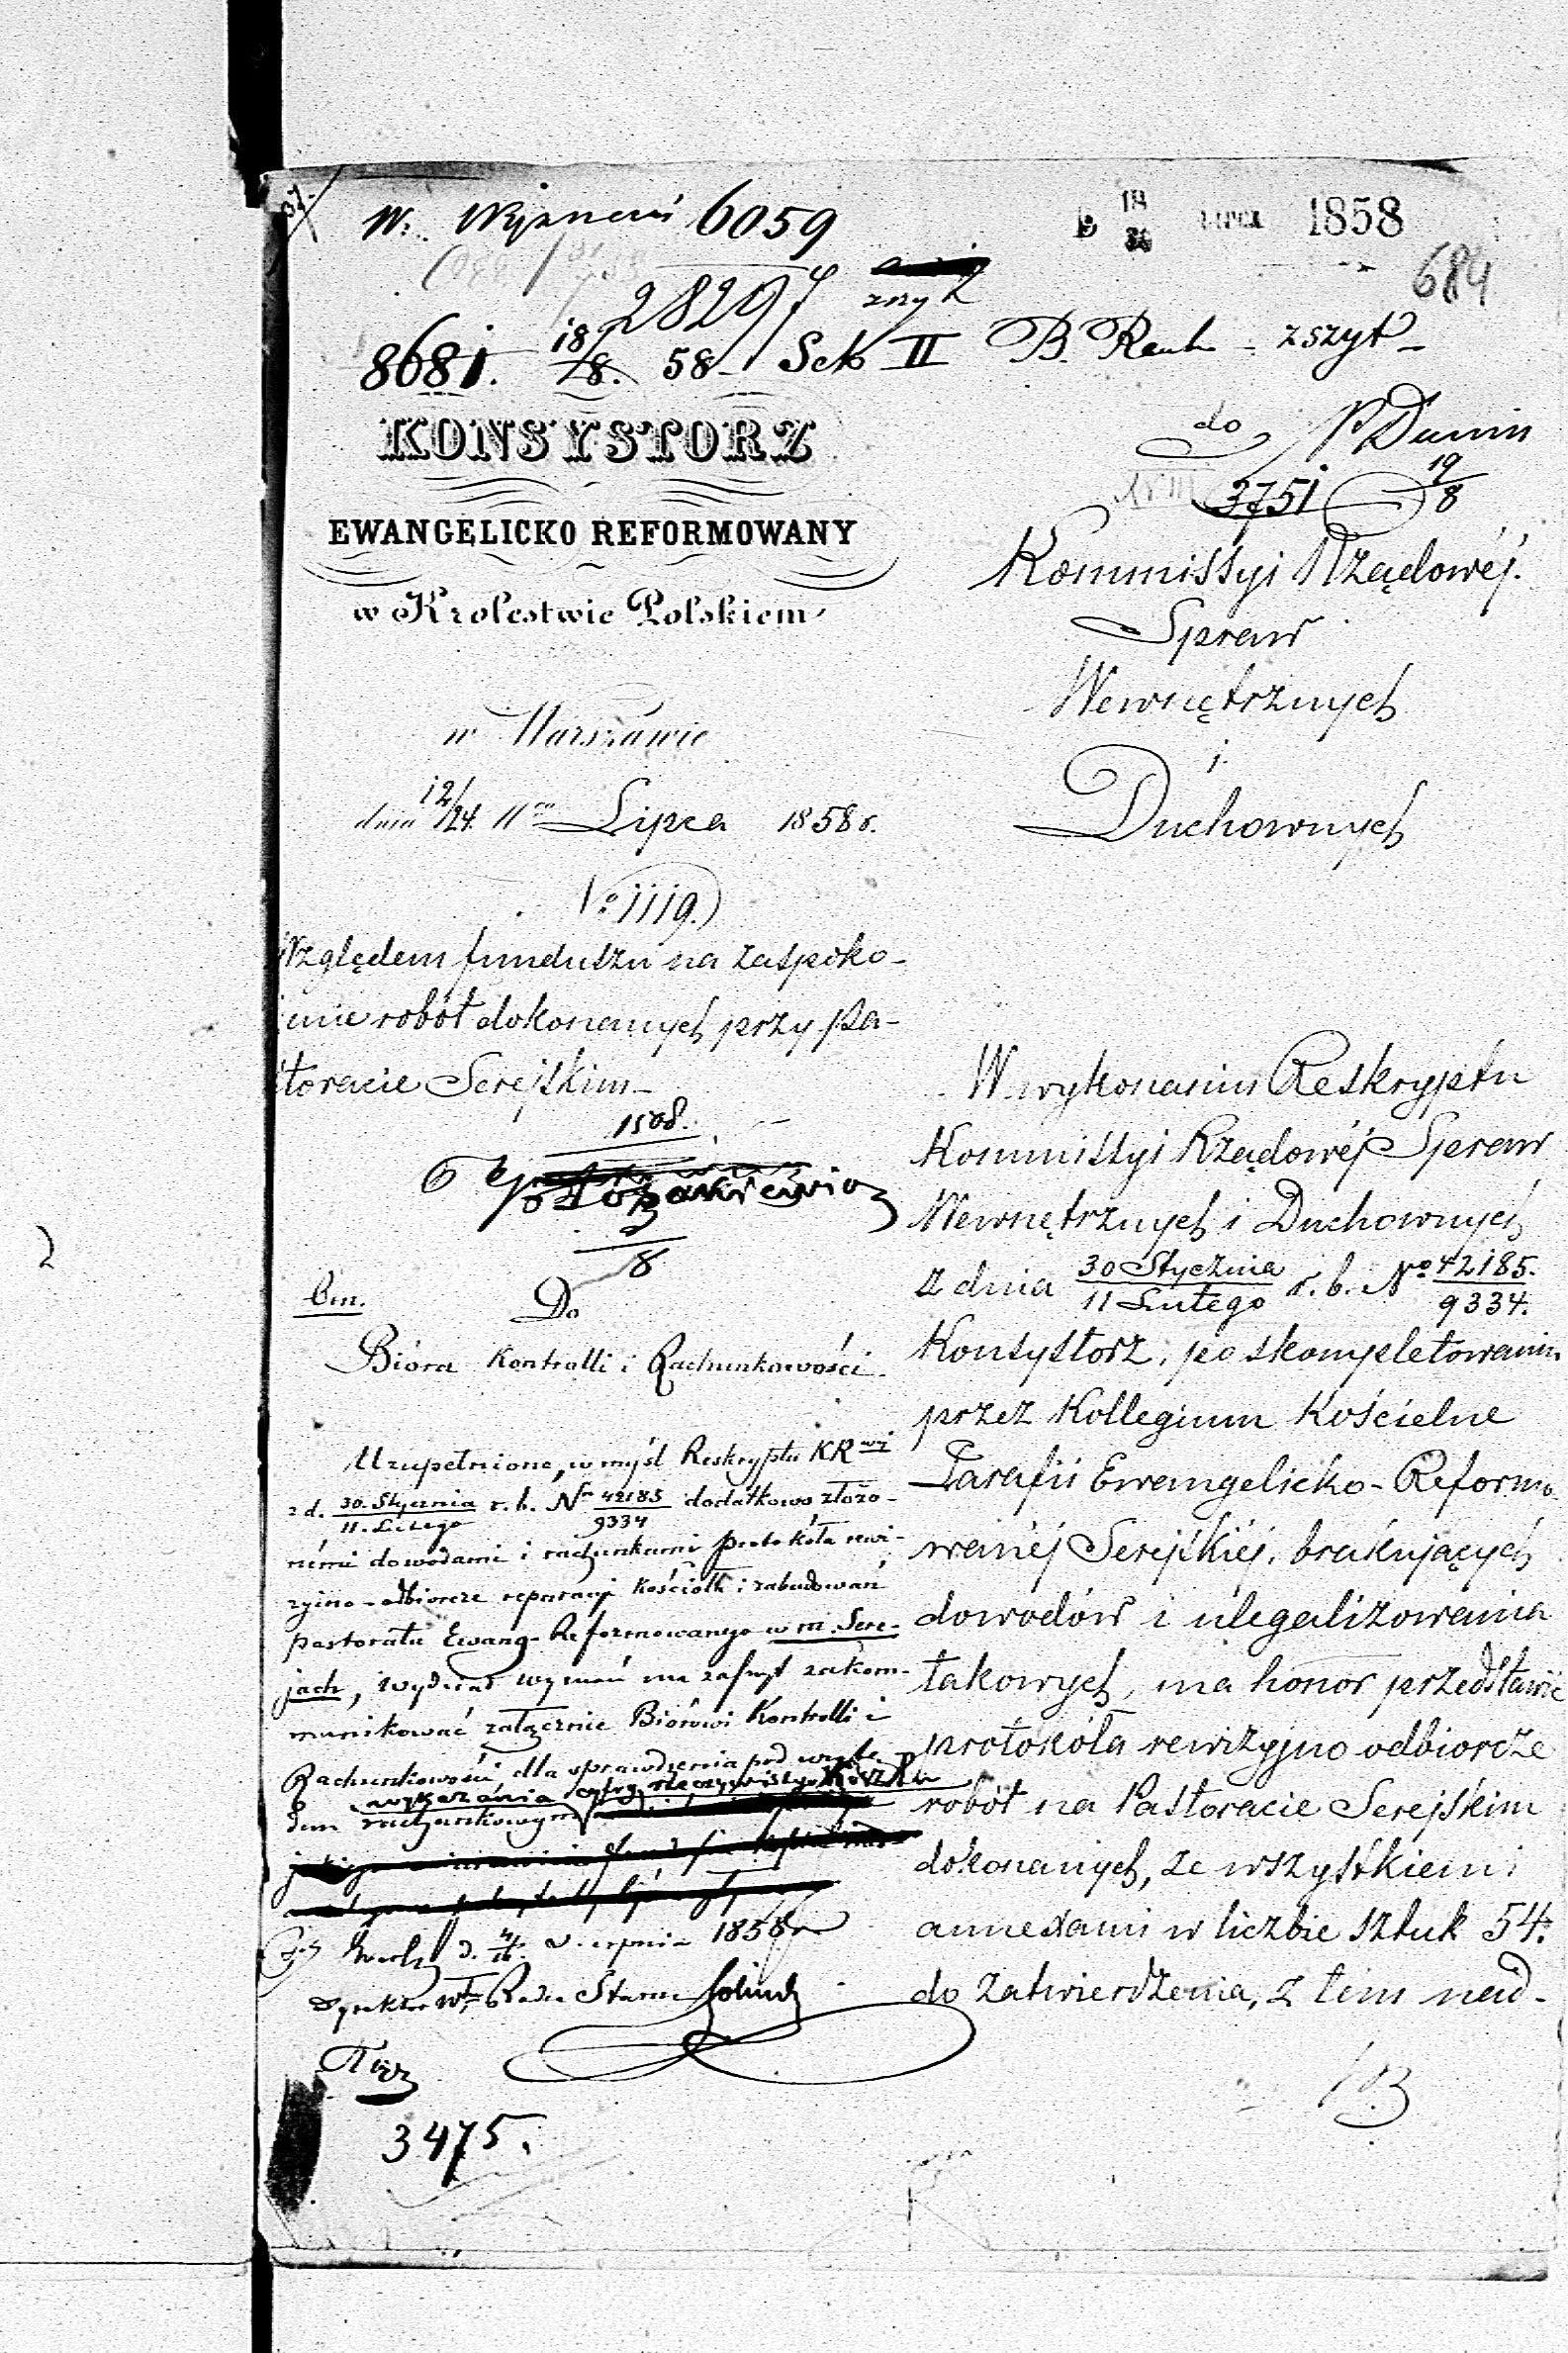 W. Wyznań 6059
LIPCA 1858
684
28297
8681. 18/8. 58 - Sek II B. Rach - zszyt -
KONSYSTORZ
EWANGELICKO REFORMOWANY
w Królestwie Polskiem
w Warszawie
dnia 12/24. Lipca 1858 r.
No 1119.
Względem funduszu na zaspoko-
jenie robót dokonanych przy Pa-
storacie Serejskim -
1508.
8
bm. Do
Bióra Kontrolli i Rachunkowości.
Uzupełnione, w myśl Reskryptu KR
z d. 30. Stycznia / 11. Lutego r. b. Nr 42185 / 9334 dodatkowo złożo-
némi dowodami i rachunkami protokóła rewi-
zyjno-odbiorcze reparacji kościoła i zabudowań
pastoratu Ewang-Reformowanego w m. Sere-
jach, Wydział wyznań ma zaszczyt zakom-
munikować załącznie Biórowi Kontrolli i
Rachunkowości dla sprawdzenia pod wzglę-
wykazania cyfry rzeczywistych
dem rachunkowym
d. Sierpnia 1858 r
Dyrektor Wł. Radca Stanu
3475.
do P Dunin
3751 19/8
Kommissyi Rządowéj
Spraw
Wewnętrznych
i
Duchownych
W wykonaniu Reskryptu
Kommissyi Rządowéj Spraw
Wewnętrznych i Duchownych
z dnia 30 Stycznia / 11 Lutego r. b. No 42185. / 9334.
Konsystorz, po skompletowaniu
przez Kollegium Kościelne
Parafii Ewangelicko-Reformo
wanéj Serejskiéj, brakujących
dowodów i ulegalizowania
takowych, ma honor przedstawić
protokóła rewizyjno odbiorcze
robót na Pastoracie Serejskim
dokonanych, ze wszystkiemi
annexami w liczbie sztuk 54.
do zatwierdzenia, z tem nad-